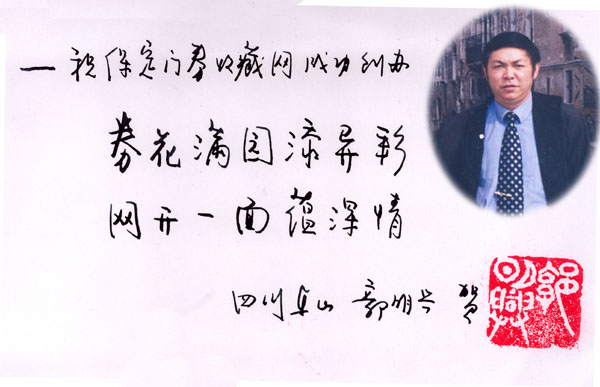 —祝保定门券收藏网成功创办
券花满园添异彩
网开一面蕴深情
四川乐山 郭明兴 贺
郭明興